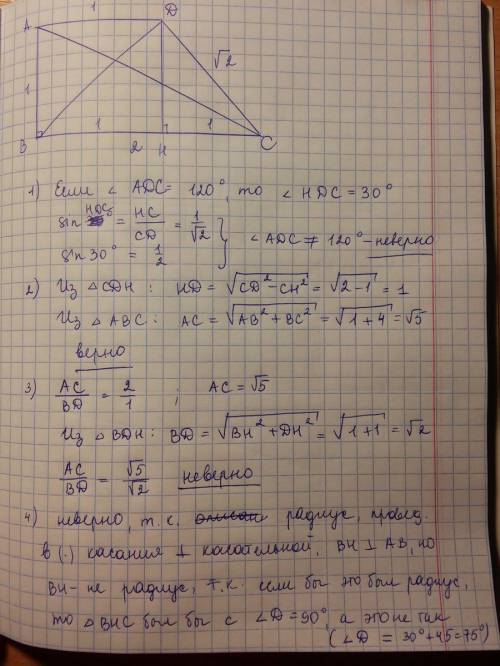 1
A D
√2
1
1 1
B 2 H C
1) Если ∠ ADC = 120°, то ∠ HDC = 30°
sin HDC = HC/CD = 1/√2
sin 30° = 1/2 } ∠ ADC ≠ 120° – неверно
2) Из △CDH : HD = √(CD² − CH²) = √(2−1) = 1
Из △ ABC : AC = √(AB² + BC²) = √(1+4) = √5
верно
3) AC/BD = 2/1 ; AC = √5
Из △ BDH : BD = √(BH² + DH²) = √(1+1) = √2
AC/BD = √5/√2 неверно
4) неверно, т.к. радиус, провед.
в (.) касания ⊥ касательной, BH ⊥ AB, но
BH – не радиус, т.к. если бы это был радиус,
то △ BHC был бы с ∠D = 90°, а это не так
(∠D = 30° + 45 = 75°)